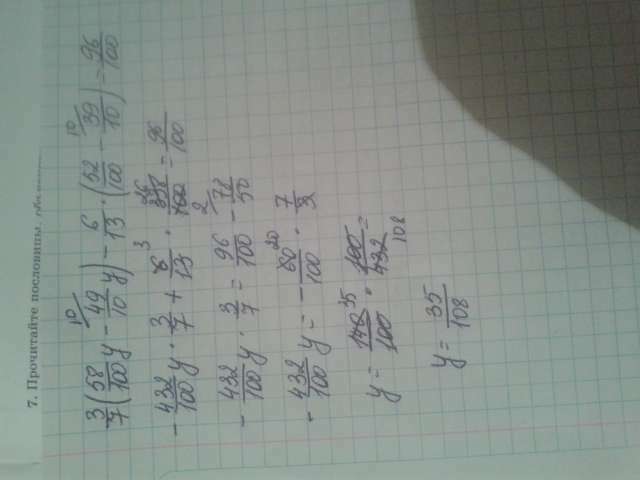 7. Прочитайте пословицы.
3/7 (58/100 y - 49/10 y) - 6/13 · (52/100 - 39/10) = 96/100
- 432/100 y · 3/7 + 6/13 · 338/100 = 96/100
- 432/100 y · 3/7 = 96/100 - 78/50
- 432/100 y = - 60/100 · 7/3
y = 140/100 · 100/432 =
y = 35/108